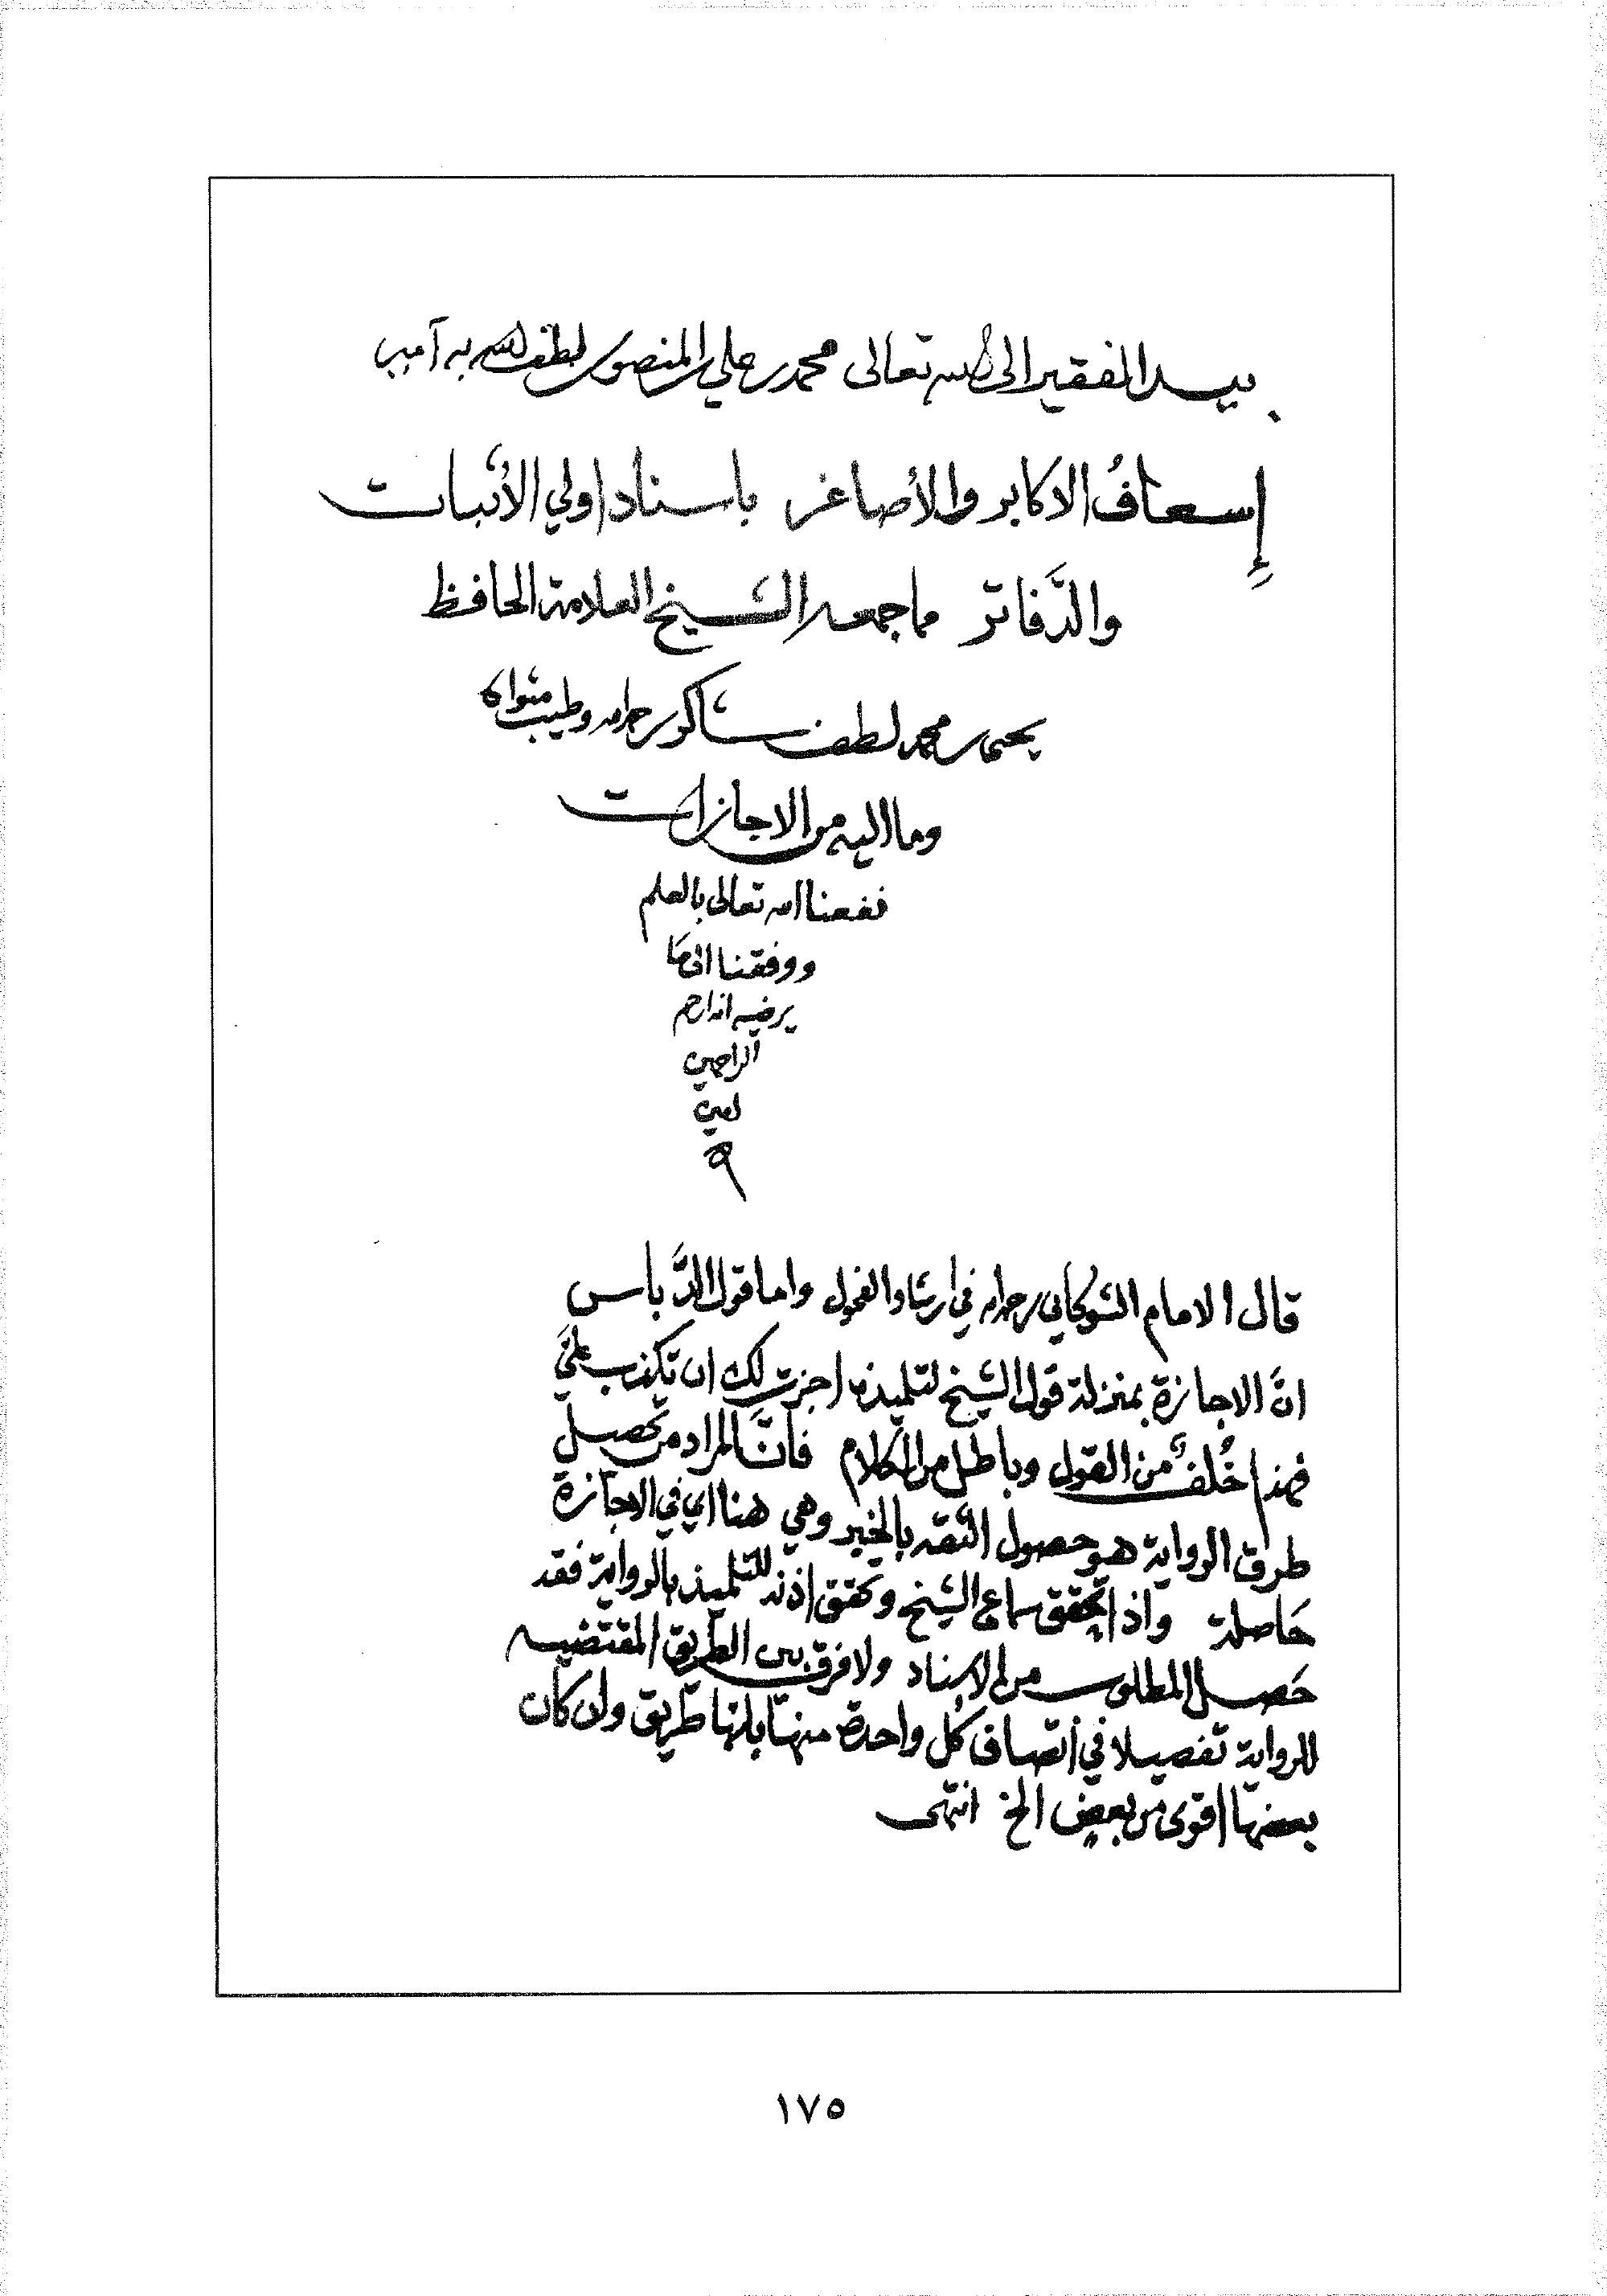 بيد الفقير الى الله تعالى محمد بن علي المنصور لطف الله به آمين
إسعافُ الاكابر والأصاغر باسناد اولي الأثبات
والدَّفاتر مما جمعه الشيخ العلامة الحافظ
يحيى بن محمد لطف شاكر رحمه الله وطيب مثواه
وما اليه من الاجازات
نفعنا الله تعالى بالعلم
ووفقنا الى ما
يرضيه انه ارحم
الراحمين
امين
قال الامام الشوكاني رحمه الله في ارشاد الفحول واما قول الدَّباس
انَّ الاجازة بمنزلة قول الشيخ لتلميذه اجزت لك ان تكذب عليَّ
فهذا خُلفٌ من القول وباطل من الكلام فانَّ المراد من تحصيل
طرق الرواية هو حصول الثقة بالخبر وهي هنا اي في الاجازة
حَاصلة واذا تحقق سماع الشيخ وتحقق اذنه للتلميذ بالرواية فقد
حَصل المطلوب من الاسناد ولا فرق بين الطريق المقتضيه
للرواية تفصيلا في اتصاف كل واحدة منها بانها طريق وان كان
بعضها اقوى من بعض الخ انتهى
١٧٥